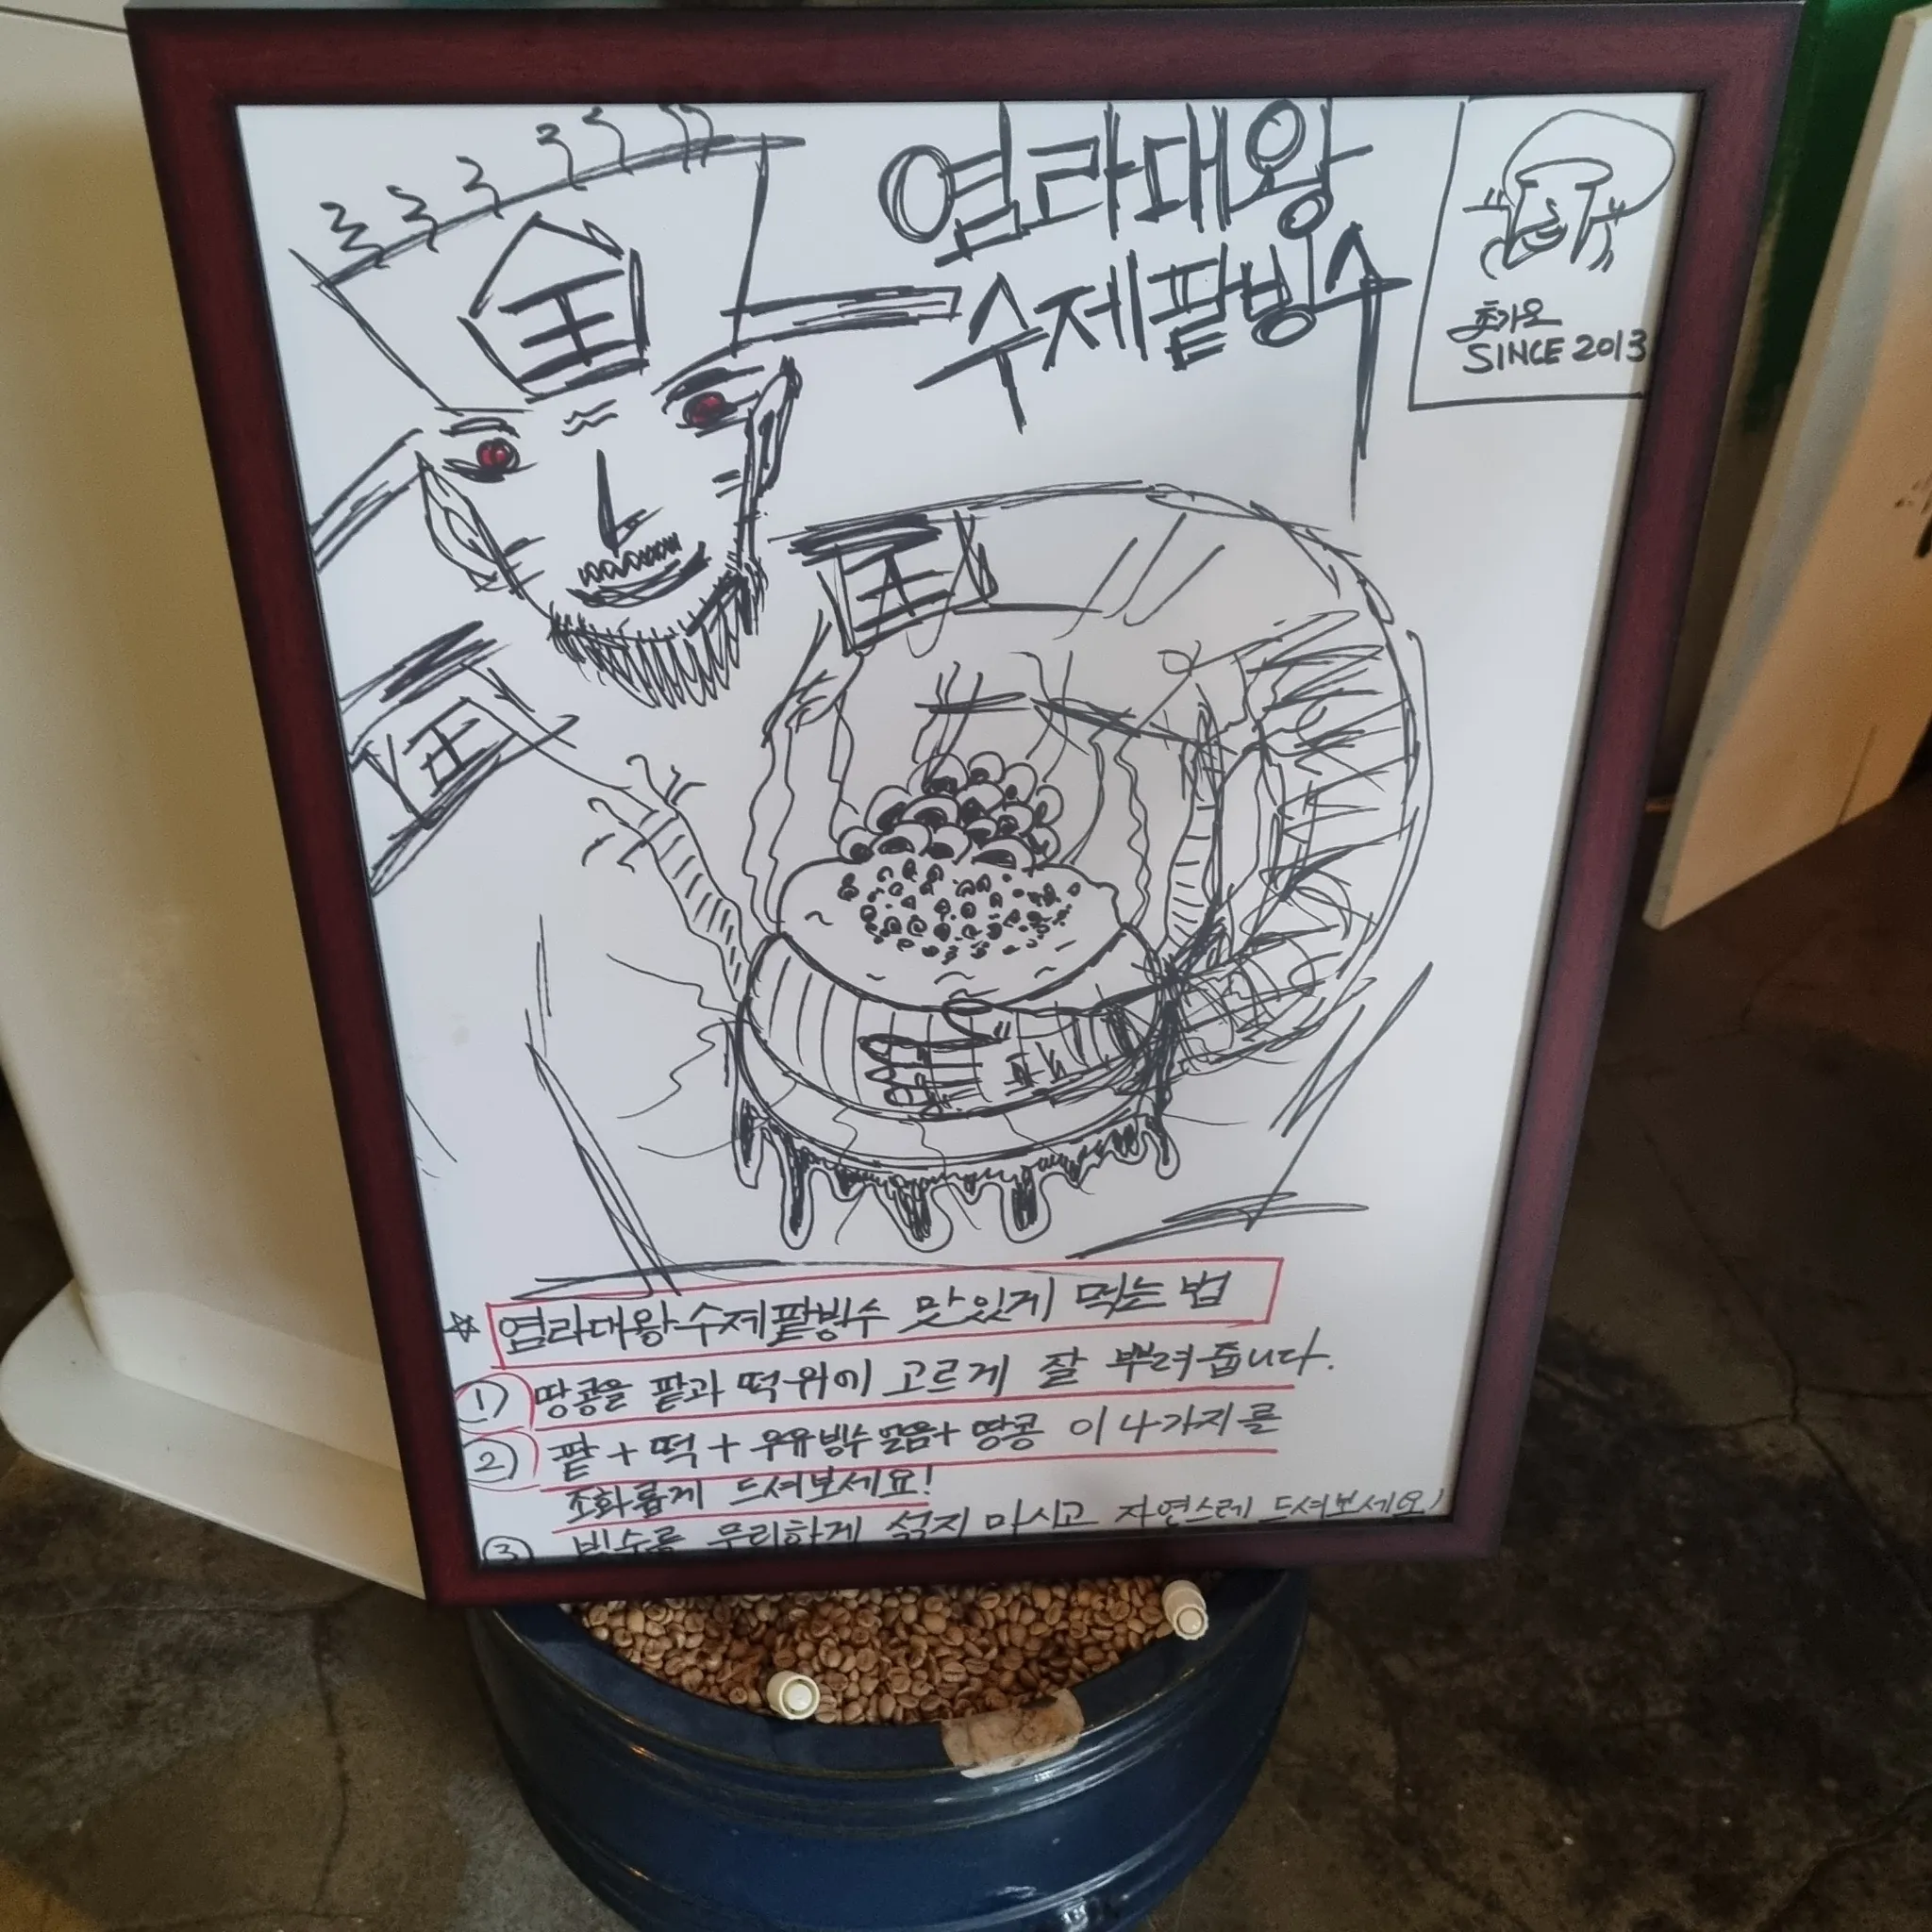 염라대왕
수제팥빙수
SINCE 2013
염라대왕수제팥빙수 맛있게 먹는 법
① 땅콩을 팥과 떡위에 고르게 잘 뿌려줍니다.
② 팥 + 떡 + 우유빙수얼음 + 땅콩 이 4가지를
조화롭게 드셔보세요!
③ 빙수를 무리하게 섞지 마시고 자연스레 드셔보세요!